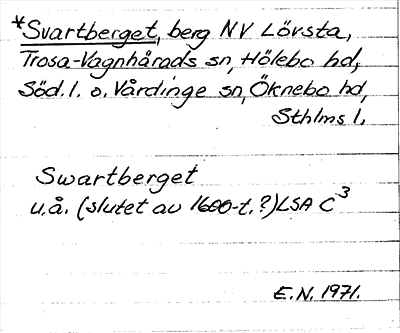 *Svartberget, berg NV Lövsta,
Trosa-Vagnhärads sn, Hölebo hd,
Söd. l. o. Vårdinge sn, Öknebo hd,
Sthlms l.
Swartberget
u.å. (slutet av 1600-t.?) LSA C3
E.N. 1971.